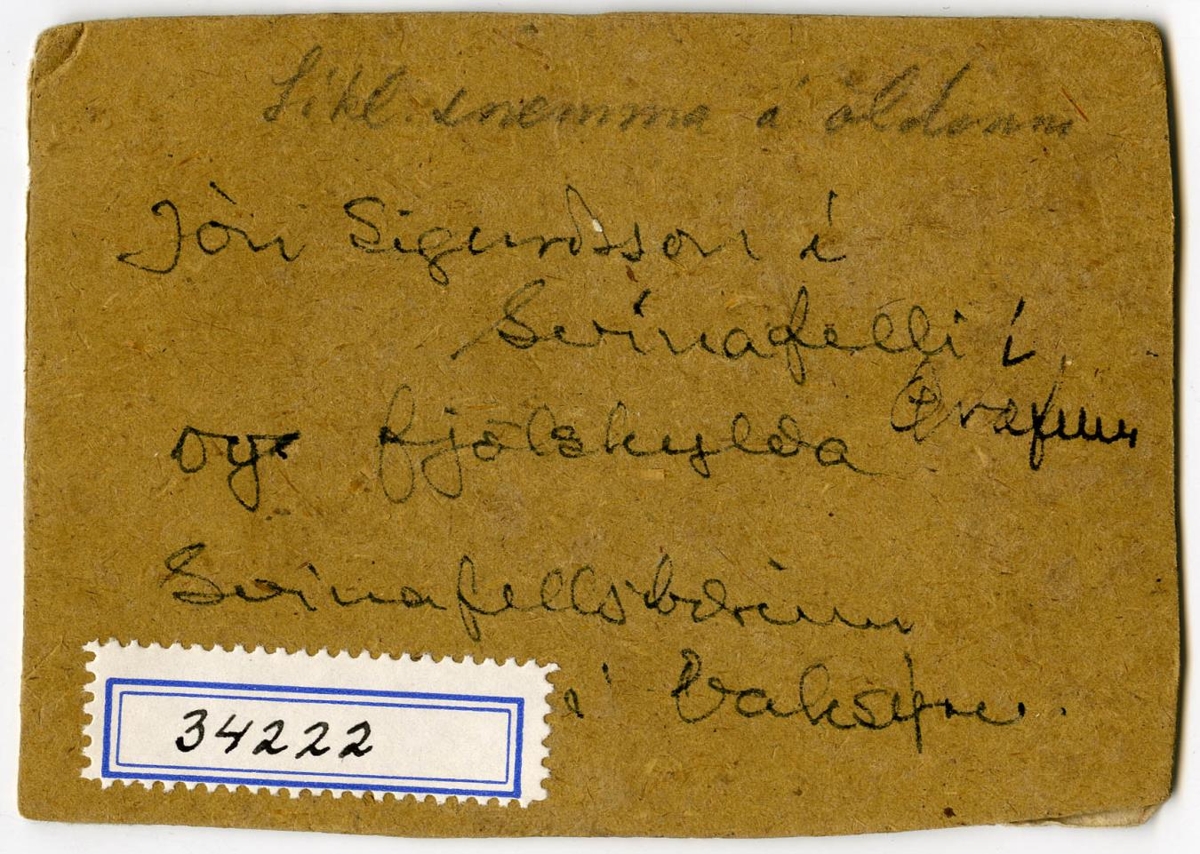 Líkl. snemma á öldinni
Jón Sigurðsson í
Svínafelli í
Öræfum
og fjölskylda
Svínafellsbærinn
í baksýn.
34222